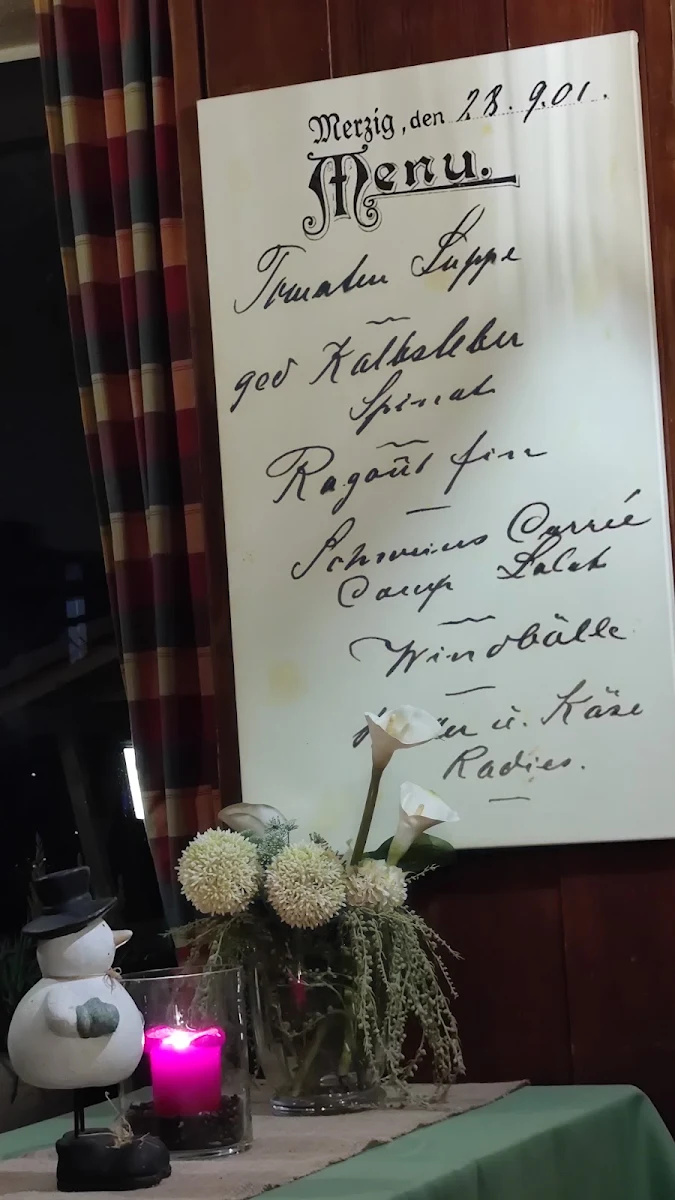 Merzig, den 28.9.01.
Menu.
Tomaten Suppe
geb Kalbsleber
Spinat
Ragoût fin
Schweins Carrée
Comp Salat
Windbälle
u. Käse
Radies.